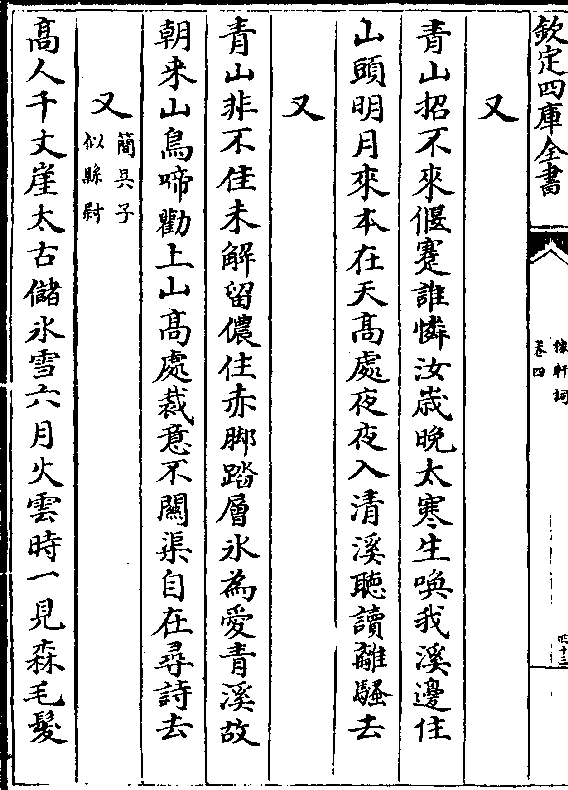 欽定四庫全書
稼軒詞
卷四
又
青山招不來偃蹇誰憐汝歳晚太寒生喚我溪邊住
山頭明月來本在天髙處夜夜入清溪聽讀離騷去
又
青山非不佳未解留儂住赤脚踏層氷為愛青溪故
朝来山鳥啼勸上山髙處裁意不闗渠自在尋詩去
又
簡吳子
似縣尉
髙人千丈崖太古儲氷雪六月火雲時一見森毛髮